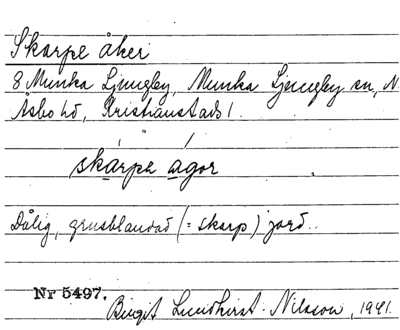 Skarpe åker
8 Munka Ljungby, Munka Ljungby sn, N.
Åsbo hd, Kristianstads l.
skárpa ágor
Dålig, grusblandad (= skarp) jord.
Nr 5497.
Birgit Lundkvist-Nilsson, 1941.